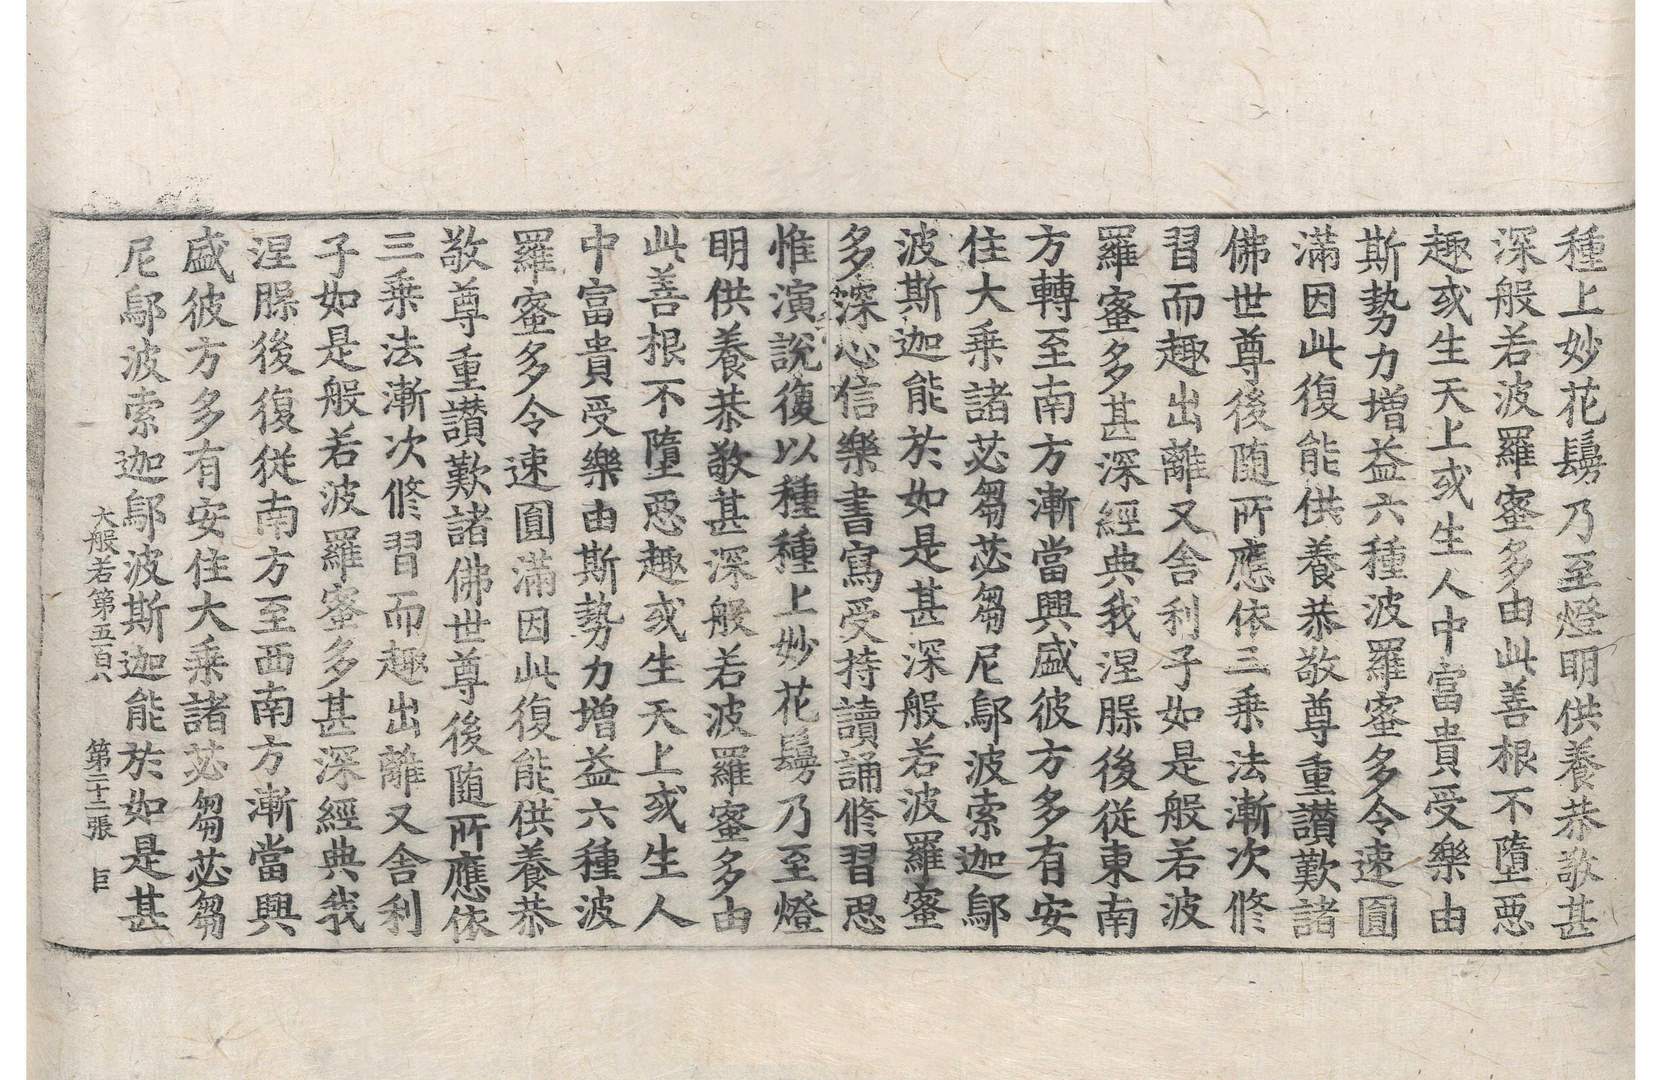 種上妙花鬘乃至燈明供養恭敬甚
深般若波羅蜜多由此善根不墮惡
趣或生天上或生人中富貴受樂由
斯勢力增益六種波羅蜜多令速圓
滿因此復能供養恭敬尊重讚歎諸
佛世尊後随所應依三乗法漸次修
習而趣出離又舍利子如是般若波
羅蜜多甚深經典我涅膝後從東南
方轉至南方漸當興盛彼方多有安
住大乗諸苾芻苾芻尼鄔波索迦鄔
波斯迦能於如是甚深般若波羅蜜
多深心信樂書寫受持讀誦修習思
惟演說復以種種上妙花鬘乃至燈
明供養恭敬甚深般若波羅蜜多由
此善根不墮惡趣或生天上或生人
中富貴受樂由斯勢力增益六種波
羅蜜多令速圓滿因此復能供養恭
敬尊重讚歎諸佛世尊後随所應依
三乗法漸次修習而趣出離又舍利
子如是般若波羅蜜多甚深經典我
涅膝後復從南方至西南方漸當興
盛彼方多有安住大乗諸苾芻苾芻
尼鄔波索迦鄔波斯迦能於如是甚
大般若第五百八 第二十二張 巨